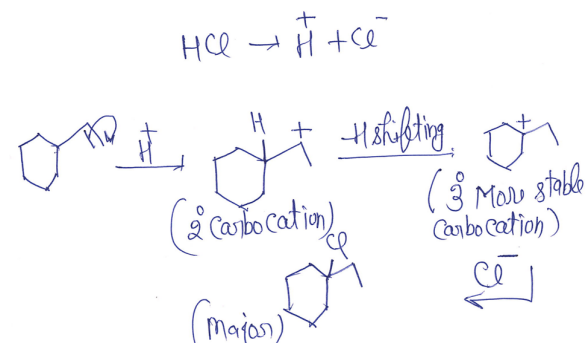 HCl → H⁺ + Cl⁻
H⁺
H
+
-H shifting
+
(2° carbocation)
(3° More stable
carbocation)
Cl⁻
Cl
(major)